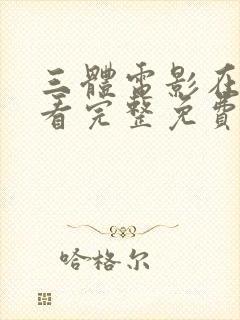 三體電影在
看完整免費
哈格尔